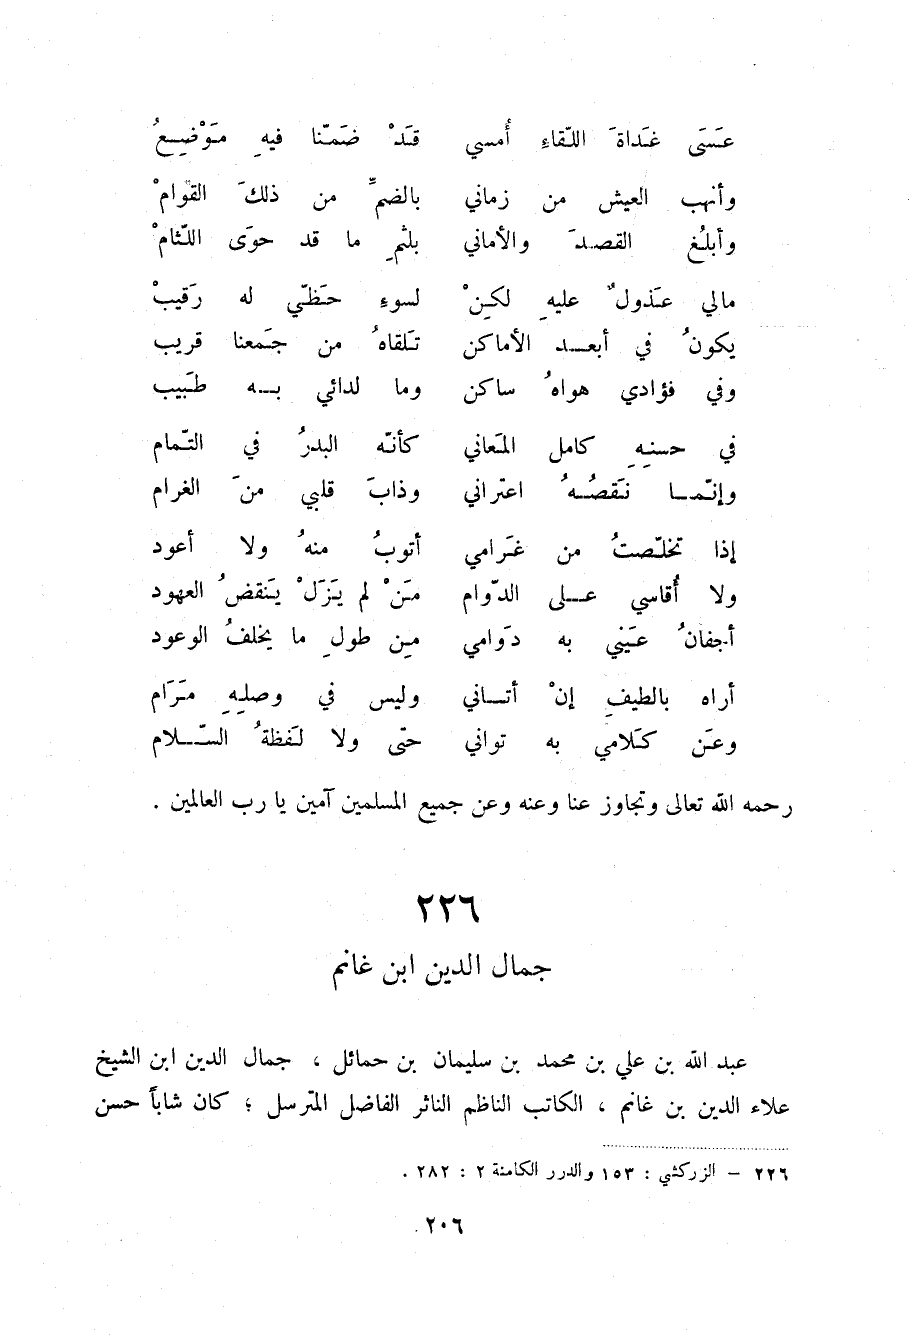 عَسَى غَداةَ اللّقاءِ أُمسي قَدْ ضَمّنا فيهِ مَوْضِعُ
وأنهب العيش من زماني بالضمِّ من ذلكَ القوامْ
وأبلُغ القصدَ والأماني بلثمِ ما قد حوَى اللّثامْ
مالي عَذولٌ عليهِ لكِنْ لسوءِ حَظّي له رَقيبْ
يكونُ في أبعد الأماكن تَلقاهُ من جَمعنا قريب
وفي فؤادي هواهُ ساكن وما لدائي به طَبيب
في حسنِهِ كامل المَعاني كأنّه البدرُ في التّمام
وإنّما نَقصُهُ اعتراني وذابَ قلبي منَ الغرام
إذا تخلّصتُ من غَرامي أتوبُ منهُ ولا أعود
ولا أُقاسي على الدّوام مَنْ لم يَزَلْ يَنقضُ العهود
أجفانُ عَيني به دَوامي مِن طولِ ما يخلفُ الوعود
أراه بالطيفِ إنْ أتاني وليس في وصلِهِ مَرَام
وعَن كَلامي به تواني حتّى ولا لَفظةُ السّلام
رحمه الله تعالى وتجاوز عنا وعنه وعن جميع المسلمين آمين يا رب العالمين .
٢٢٦
جمال الدين ابن غانم
عبد الله بن علي بن محمد بن سليمان بن حمائل ، جمال الدين ابن الشيخ
علاء الدين بن غانم ، الكاتب الناظم الناثر الفاضل المترسل ؛ كان شاباً حسن
٢٢٦ – الزركشي : ١٥٣ والدرر الكامنة ٢ : ٢٨٢ .
٢٠٦